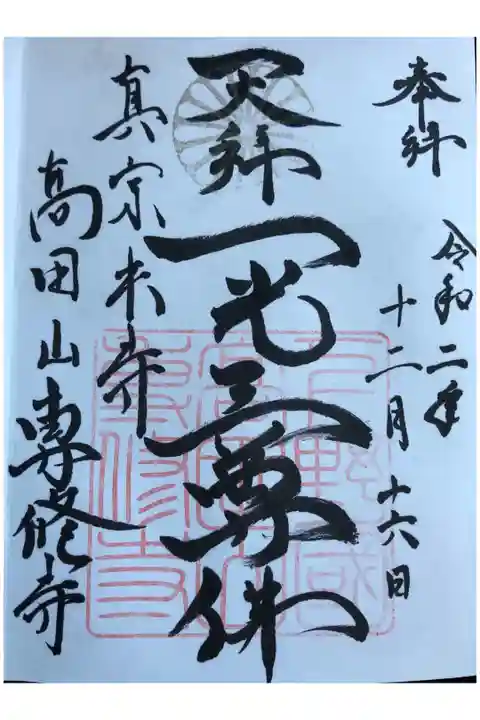 奉拝
令和二年
十二月十六日
天拝一光三尊佛
真宗本寺
高田山專修寺